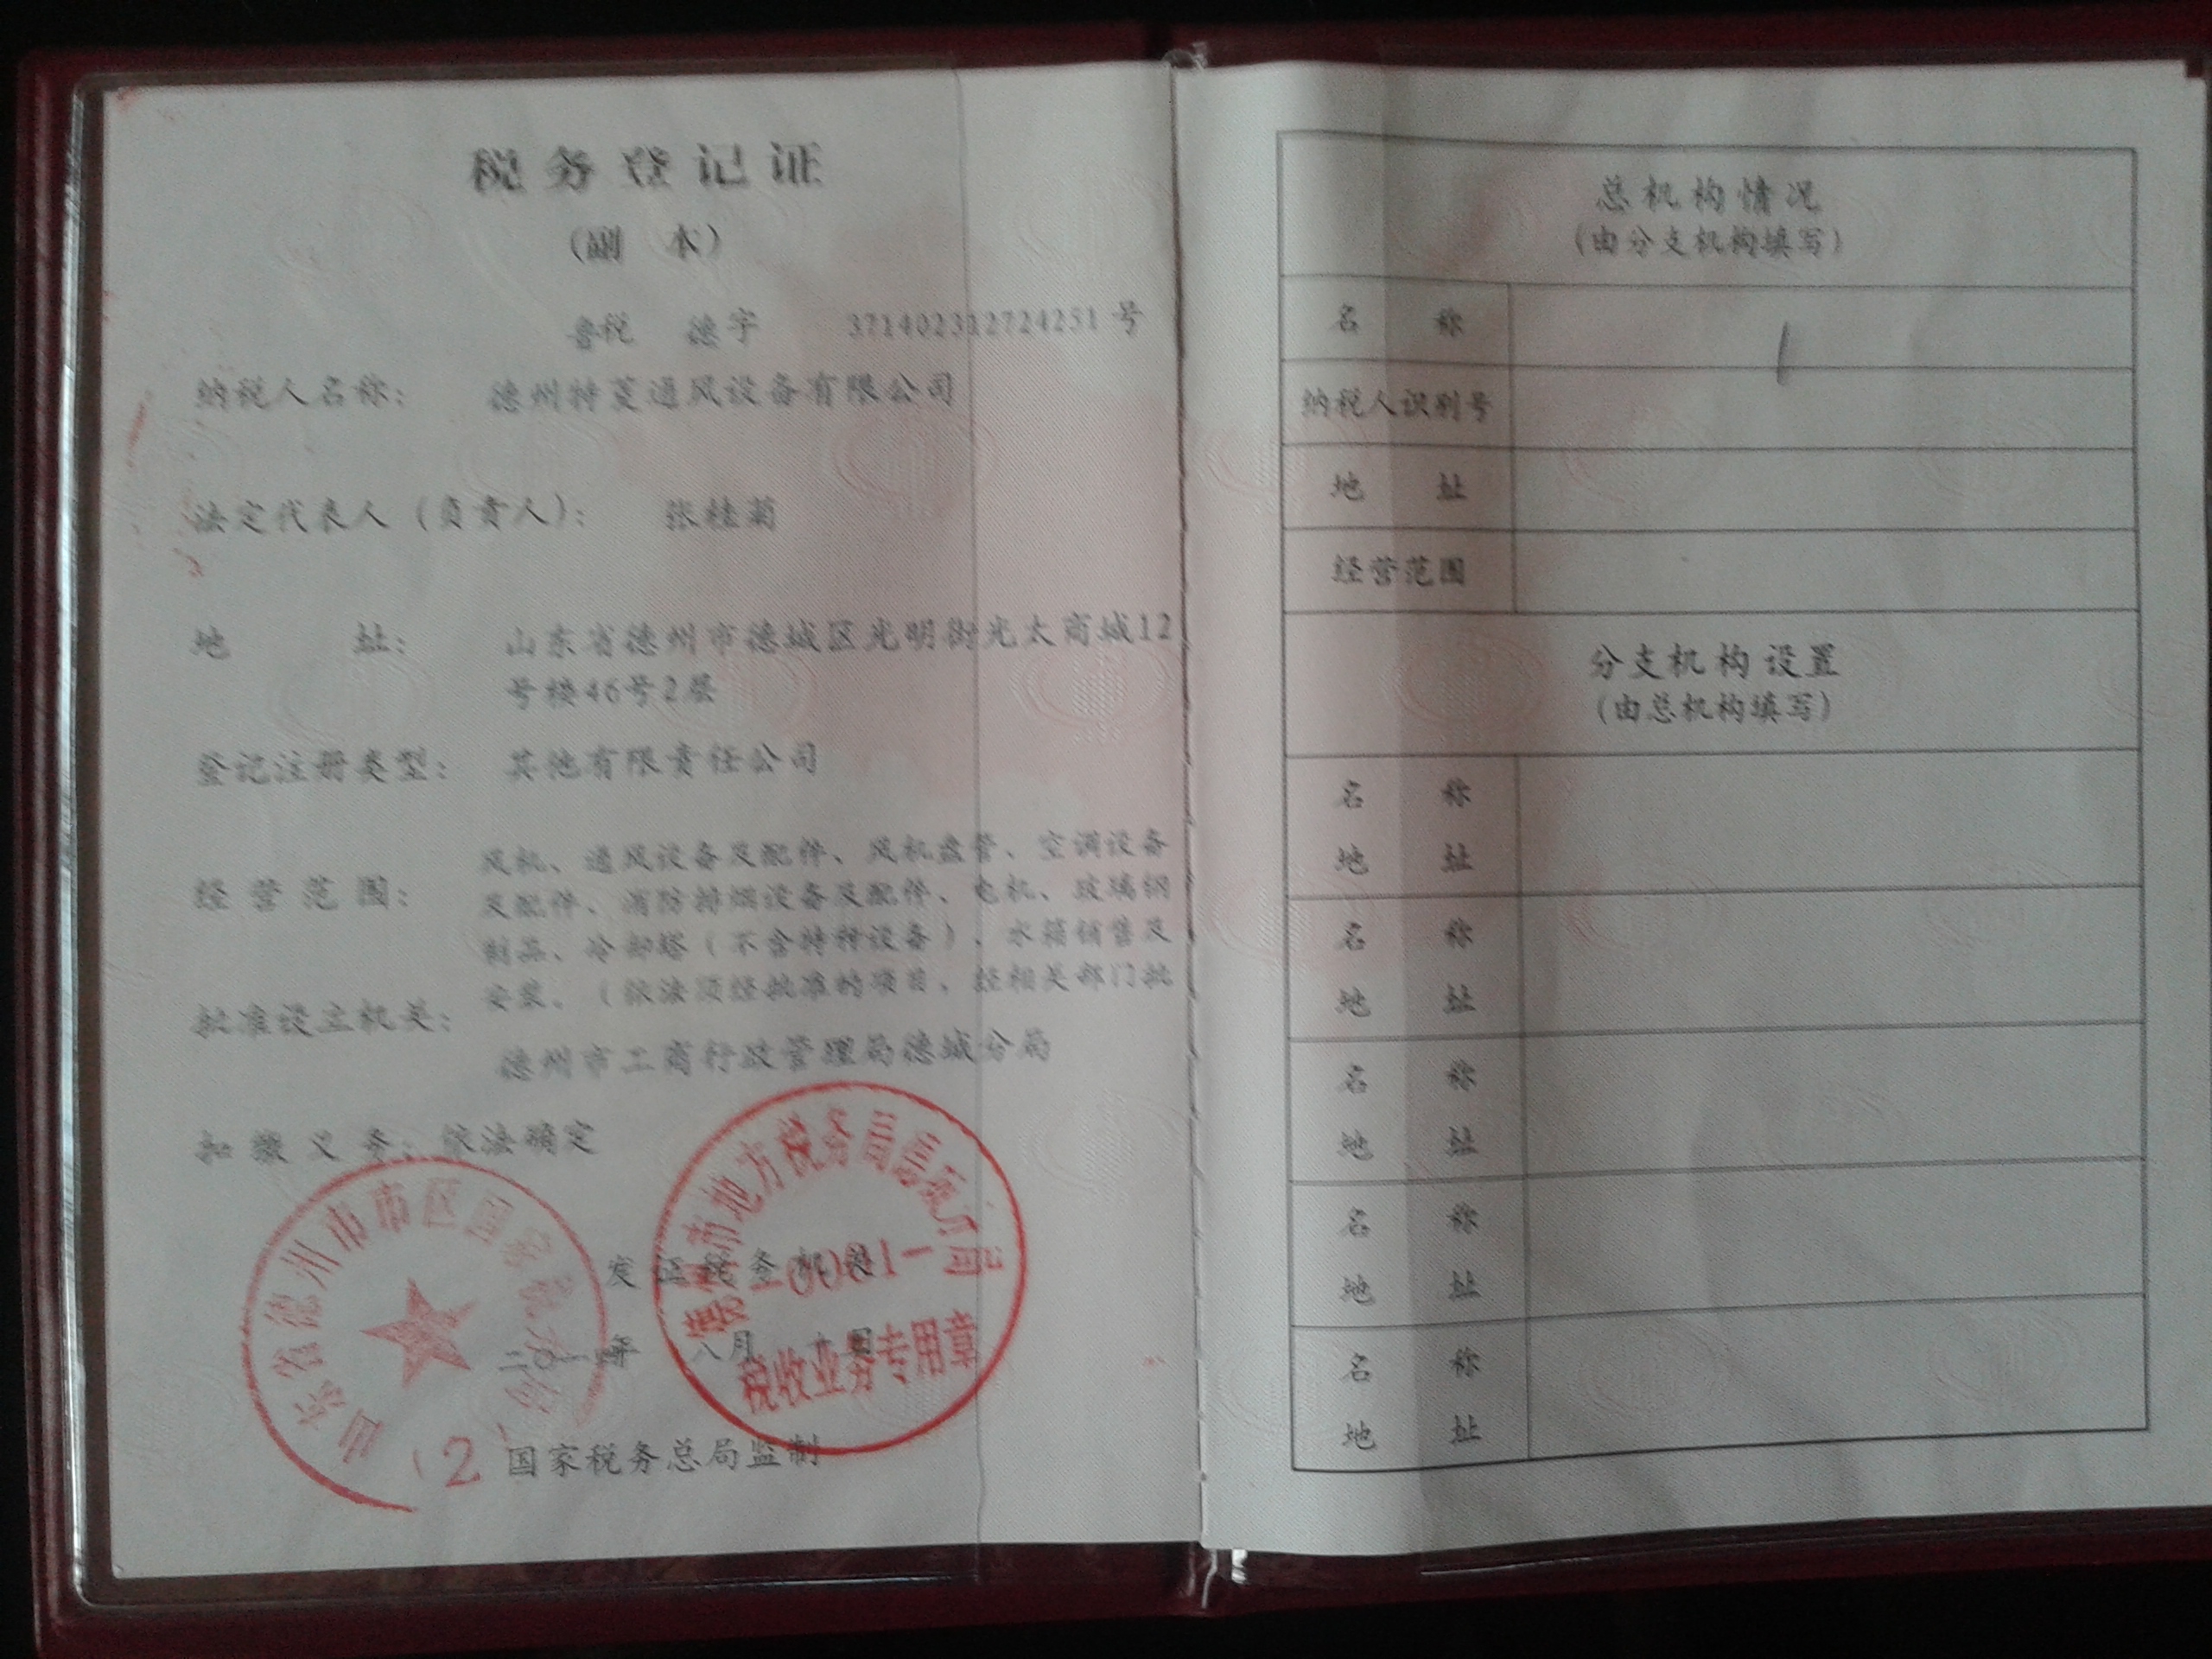 税务登记证
(副 本)
鲁税 德字 371402312724251 号
纳税人名称: 德州特菱通风设备有限公司
法定代表人(负责人): 张桂菊
地 址: 山东省德州市德城区光明街光太商城12
号楼46号2层
登记注册类型: 其他有限责任公司
经营范围:
风机、通风设备及配件、风机盘管、空调设备
及配件、消防排烟设备及配件、电机、玻璃钢
制品、冷却塔(不含特种设备)、水箱销售及
安装。(依法须经批准的项目,经相关部门批
批准设立机关:
德州市工商行政管理局德城分局
扣缴义务: 依法确定
山东省德州市市区国家税务局
(2
市地方税务局
税收业务专用章
发证税务机关
年 八月
国家税务总局监制
总机构情况
(由分支机构填写)
名 称
纳税人识别号
地 址
经营范围
分支机构设置
(由总机构填写)
名 称
地 址
名 称
地 址
名 称
地 址
名 称
地 址
名 称
地 址